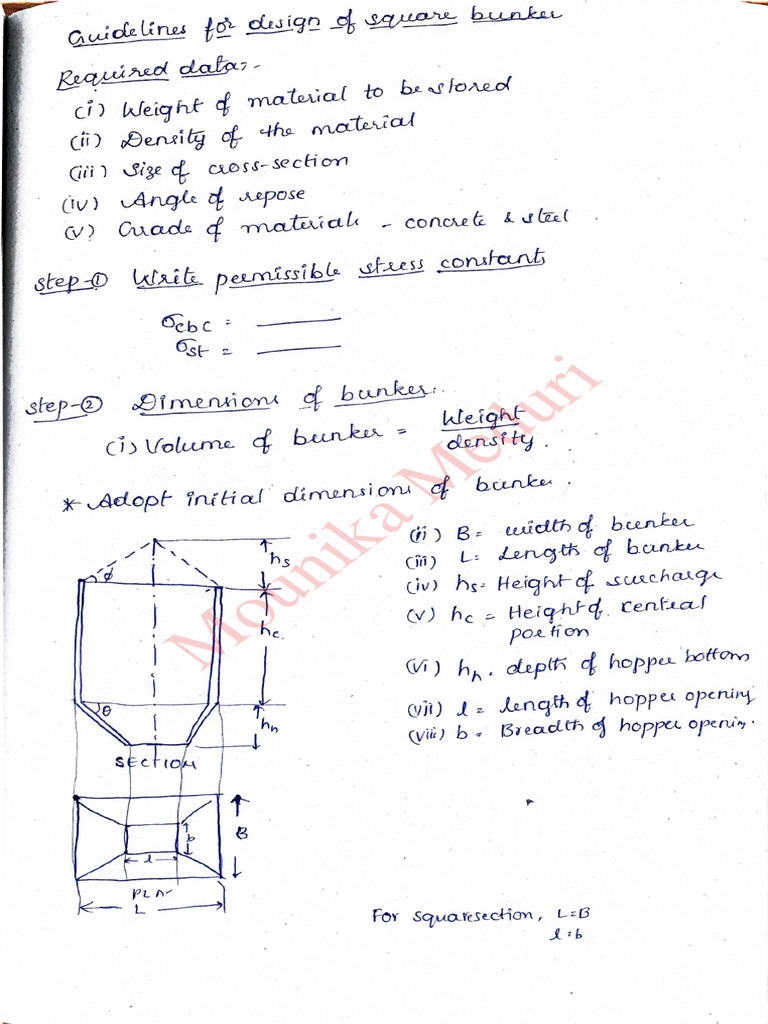 Guidelines for design of square bunker
Required data:-
(i) Weight of material to be stored
(ii) Density of the material
(iii) Size of cross-section
(iv) Angle of repose
(v) Grade of materials - concrete & steel
Step-① Write permissible stress constants
σcbc = ______
σst = ______
Step-② Dimensions of bunker:-
(i) Volume of bunker = Weight
density.
* Adopt initial dimensions of bunker.
(ii) B = width of bunker
(iii) L = Length of bunker
(iv) hs = Height of surcharge
(v) hc = Height of central
portion
(vi) hh = depth of hopper bottom
(vii) l = length of hopper opening
(viii) b = Breadth of hopper opening.
hs
ϕ
hc
θ
hh
SECTION
B
b
l
PLAN
L
For square section, L=B
l=b
Mounika Meduri